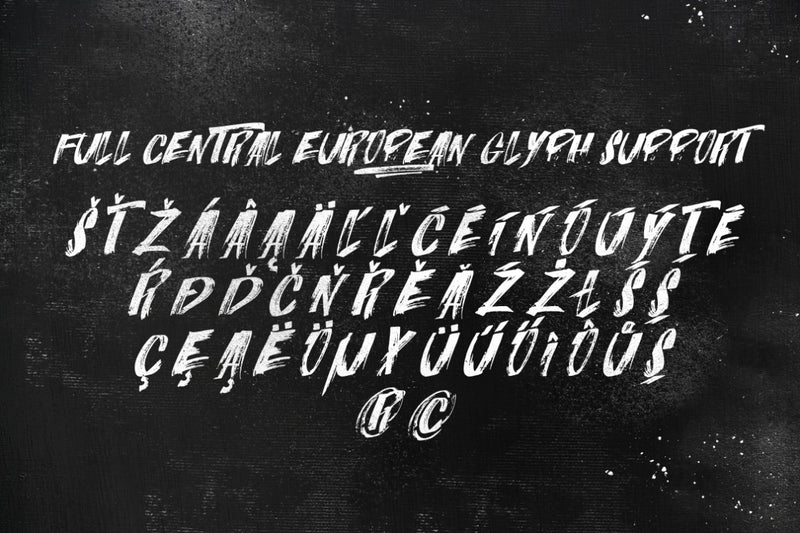 FULL CENTRAL EUROPEAN GLYPH SUPPORT
ŠŤŽÁÂĄÄĽĽĆÉÍŃÓÚÝTÉ
ŔĐĎČŇŘĚĂŹŻŁŚŚ
ÇĘĄËÖµXÜŰŐıÔŮŞ
® ©